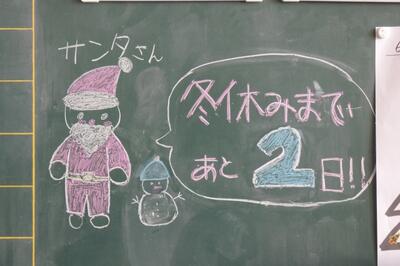 サンタさん
冬休みまで、
あと2日!!